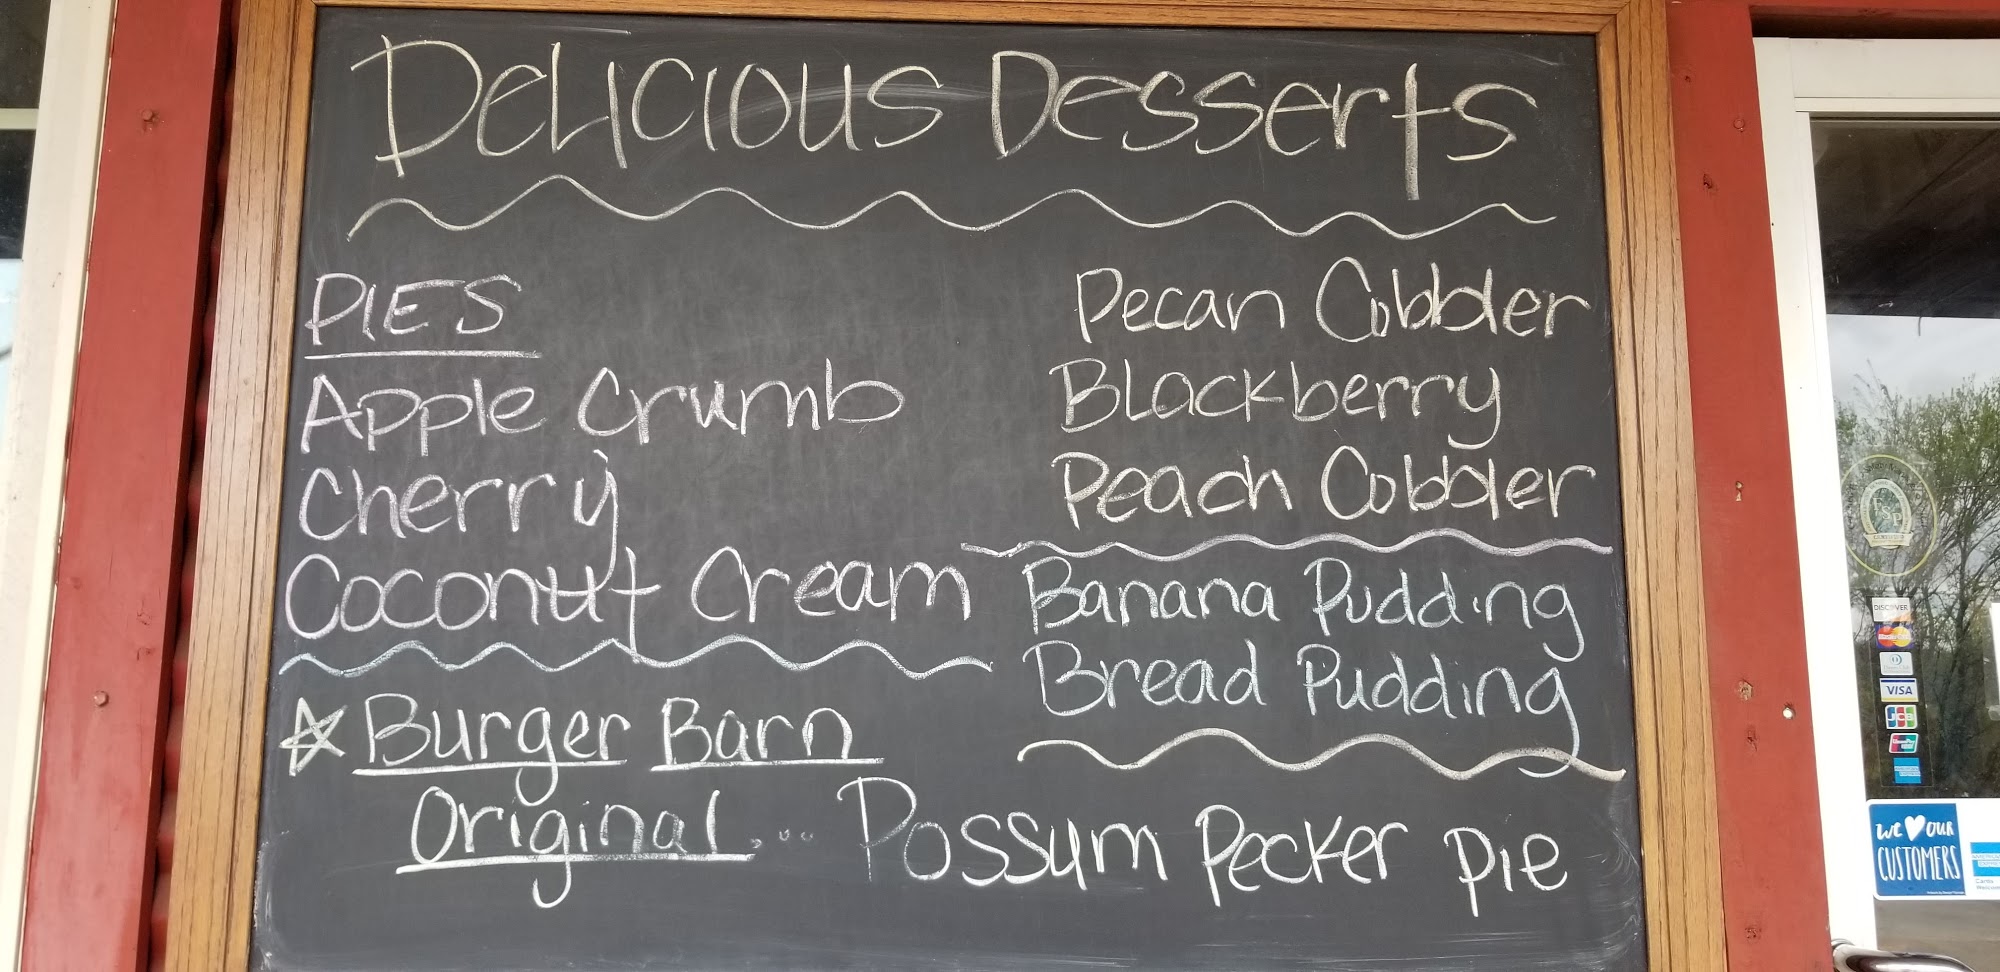 Delicious Desserts
PIES
Apple Crumb
Cherry
Coconut Cream
Pecan Cobbler
Blackberry
Peach Cobbler
Banana Pudding
Bread Pudding
Burger Barn
Original... Possum Pecker Pie
DISCOVER
MasterCard
VISA
JCB
WE OUR
CUSTOMERS